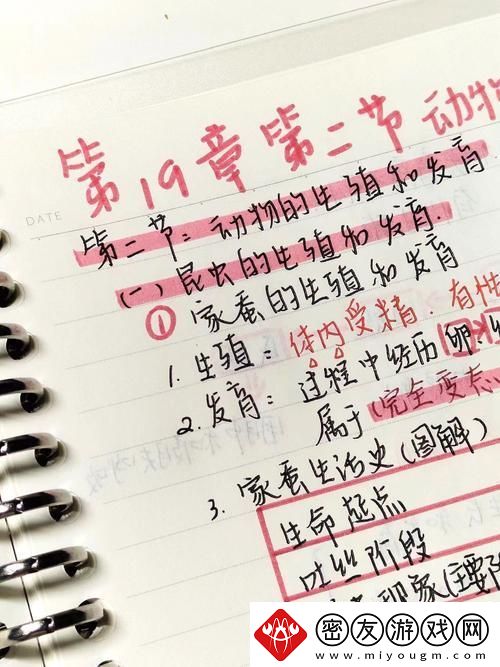 第19章 第二节 动物
DATE
第二节：动物的生殖和发育.
(一) 昆虫的生殖和发育.
① 家蚕的生殖和发育
1. 生殖：体内受精. 有性
2. 发育：过程中经历 卵.
属于(完全变态
3. 家蚕生活史(图解)
生命起点
吐丝阶段
现象(主要
密友游戏网
www.miyougm.com